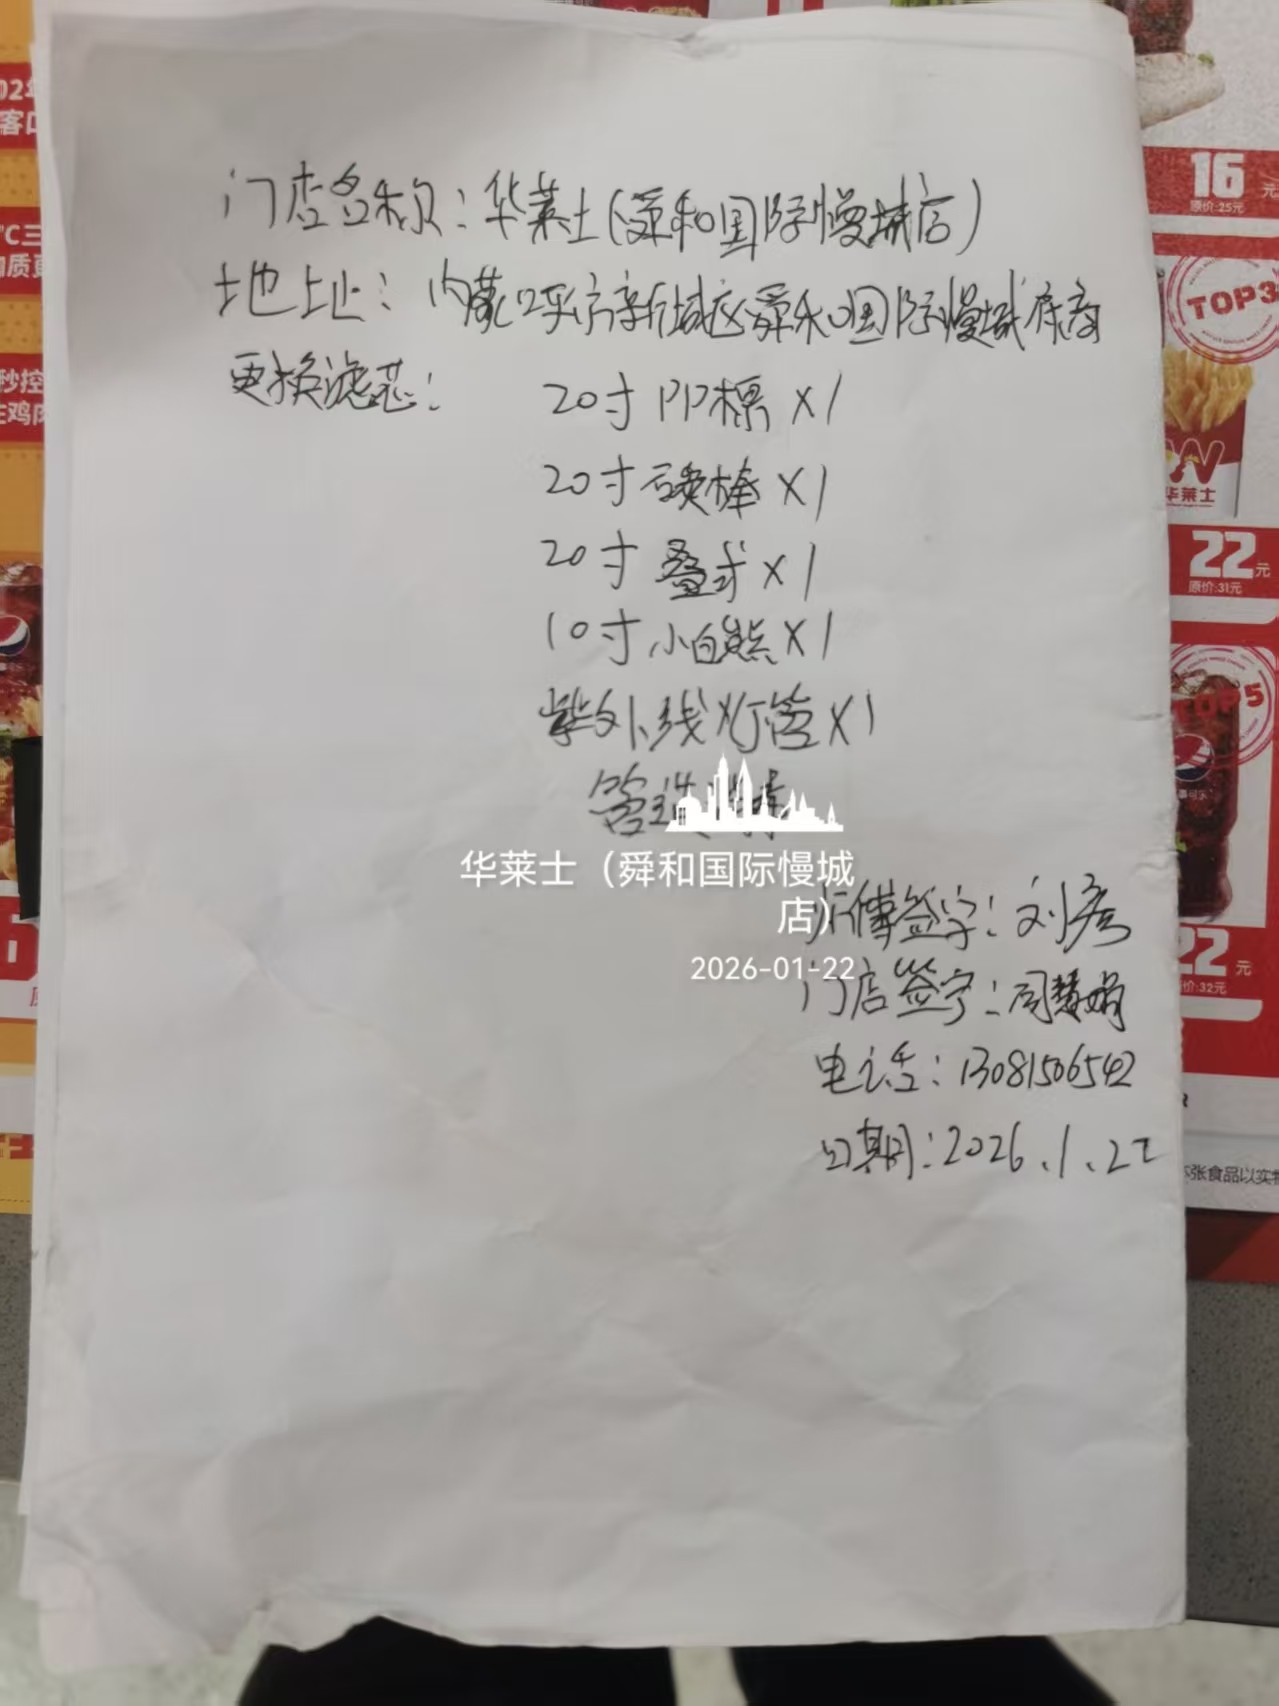 门店名称：华莱士(舜和国际慢城店)
地址：内蒙呼市新城区舜和国际慢城底商
更换滤芯：
20寸PP棉X1
20寸碳棒X1
20寸叠式X1
10寸小白熊X1
紫外线灯管X1
华莱士（舜和国际慢城
店）
2026-01-22
师傅签字：刘彦
门店签字：闫慧娟
电话：13081506542
日期：2026.1.22
16元
原价:25元
TOP3
华莱士
22元
原价:31元
TOP5
22元
价:32元